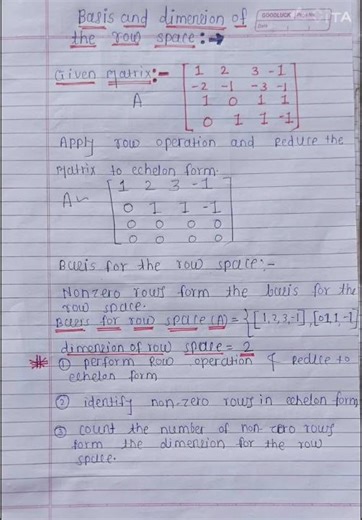 Basis and dimension of
the row space:→
GOODLUCK
Date
Given Matrix:-
A
1 2 3 -1
-2 -1 -3 -1
1 0 1 1
0 1 1 -1
Apply row operation and Reduce the
Matrix to echelon form.
A ~
1 2 3 -1
0 1 1 -1
0 0 0 0
0 0 0 0
Basis for the row space:-
Nonzero rows form the basis for the
row space.
Basis for row space (A) = {[1,2,3,-1],[0 1,1 -1]
dimension of row space = 2
① perform Row operation & Reduce to
echelon form
② identify non-zero rows in echelon form
③ count the number of non-zero rows
form the dimension for the row
space.